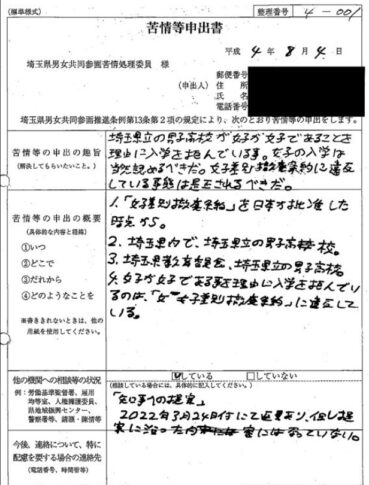 (標準様式)
整理番号 4-001
苦情等申出書
平成 4年 8月 4日
埼玉県男女共同参画苦情処理委員 様
郵便番号
(申出人) 住所
氏名
電話番号
埼玉県男女共同参画推進条例第13条第2項の規定により、次のとおり苦情等の申出をします。
苦情等の申出の趣旨
(解決してもらいたいこと。)
埼玉県立の男子高校が女子が女子であることを
理由に入学を拒んでいる事。女子の入学は
当然認めるべきだ。女子差別撤廃条約に違反
している事態は是正されるべきだ。
苦情等の申出の概要
(具体的な内容と経緯)
①いつ
②どこで
③だれから
④どのようなことを
※書ききれないときは、他の
用紙を使用してください。
1.「女子差別撤廃条約」を日本が批准した
時点から。
2.埼玉県内で、埼玉県立の男子高校。
3.埼玉県教育委員会、埼玉県立の男子高校
4.女子が女子である事を理由に入学を拒んでい
るのは、「女子差別撤廃条約」に違反して
いる。
他の機関への相談等の状況
例:労働基準監督署、雇用
均等室、人権擁護委員、
県地域振興センター、
警察署等、請願・陳情等
している
していない
(相談している場合には、具体的に記入してください。)
「知事への提案」
2022年3月24日付にて返事あり、但し提
案に沿った内容にはなっていない。
今後、連絡について、特に
配慮を要する場合の連絡先
(電話番号、時間帯等)